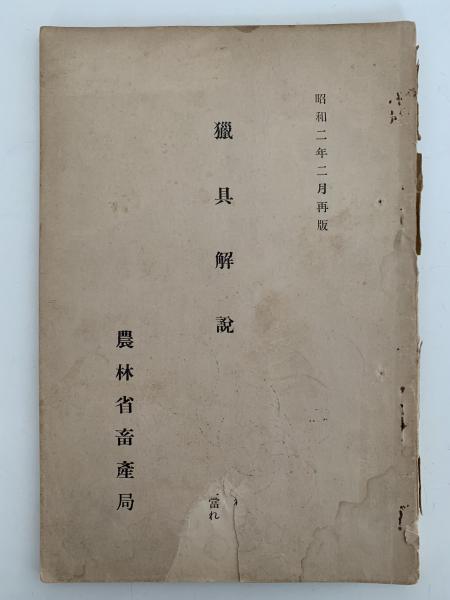 昭和二年二月再版
獵具解說
農林省畜產局
當れ